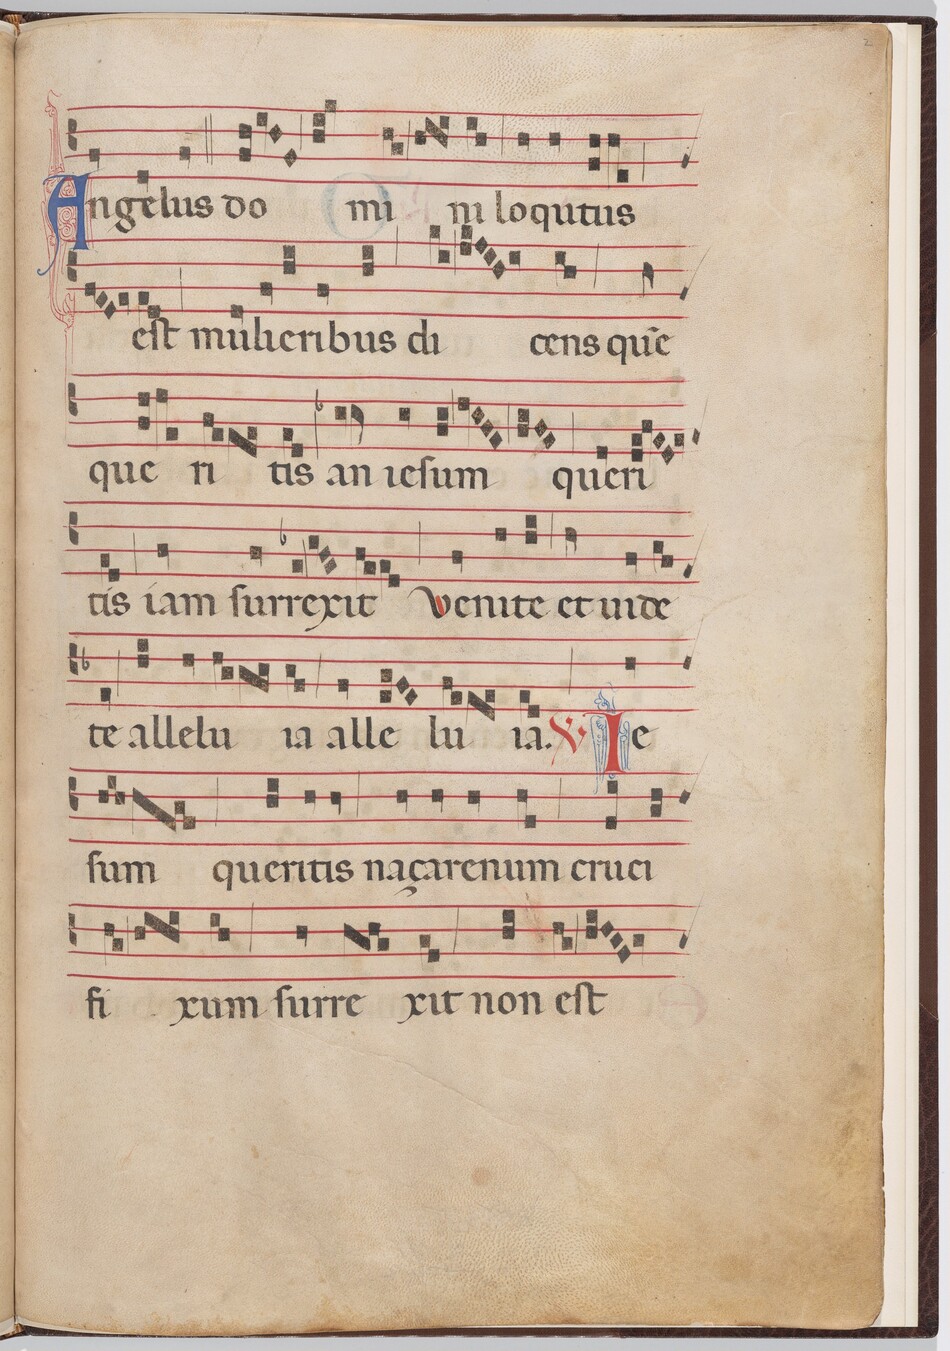 2
Angelus do mi ni loqutus
est mulieribus di cens quē
que ri tis an iesum queri
tis iam surrexit Venite et uide
te allelu ia alle lu ia. V Ie
sum queritis naçarenum cruci
fi xum surre xit non est